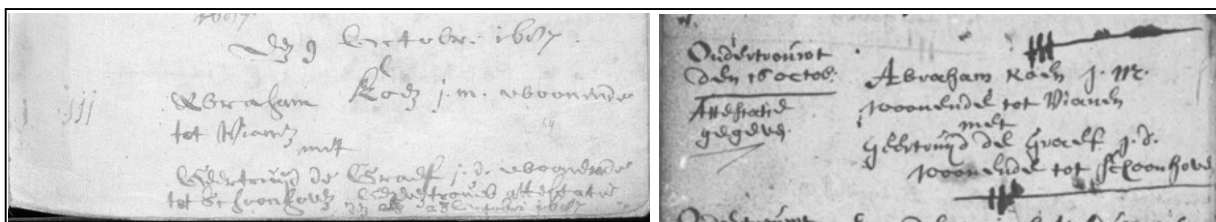 1687.
Den 9 Octobr. 1687.
jjj
Abraham Rodz j.m. woonende
tot Vianen
met
Geertruijd de Graeff j.d. woonende
tot Schoonhoven attestatie
1687
Ondertrouwt
den 16 octob.
Attestatie
gegeven.
Abraham Roen j. m.
woonende tot Vianen
met
geertruijd de Graeff j.d.
woonende tot Schoonhoven